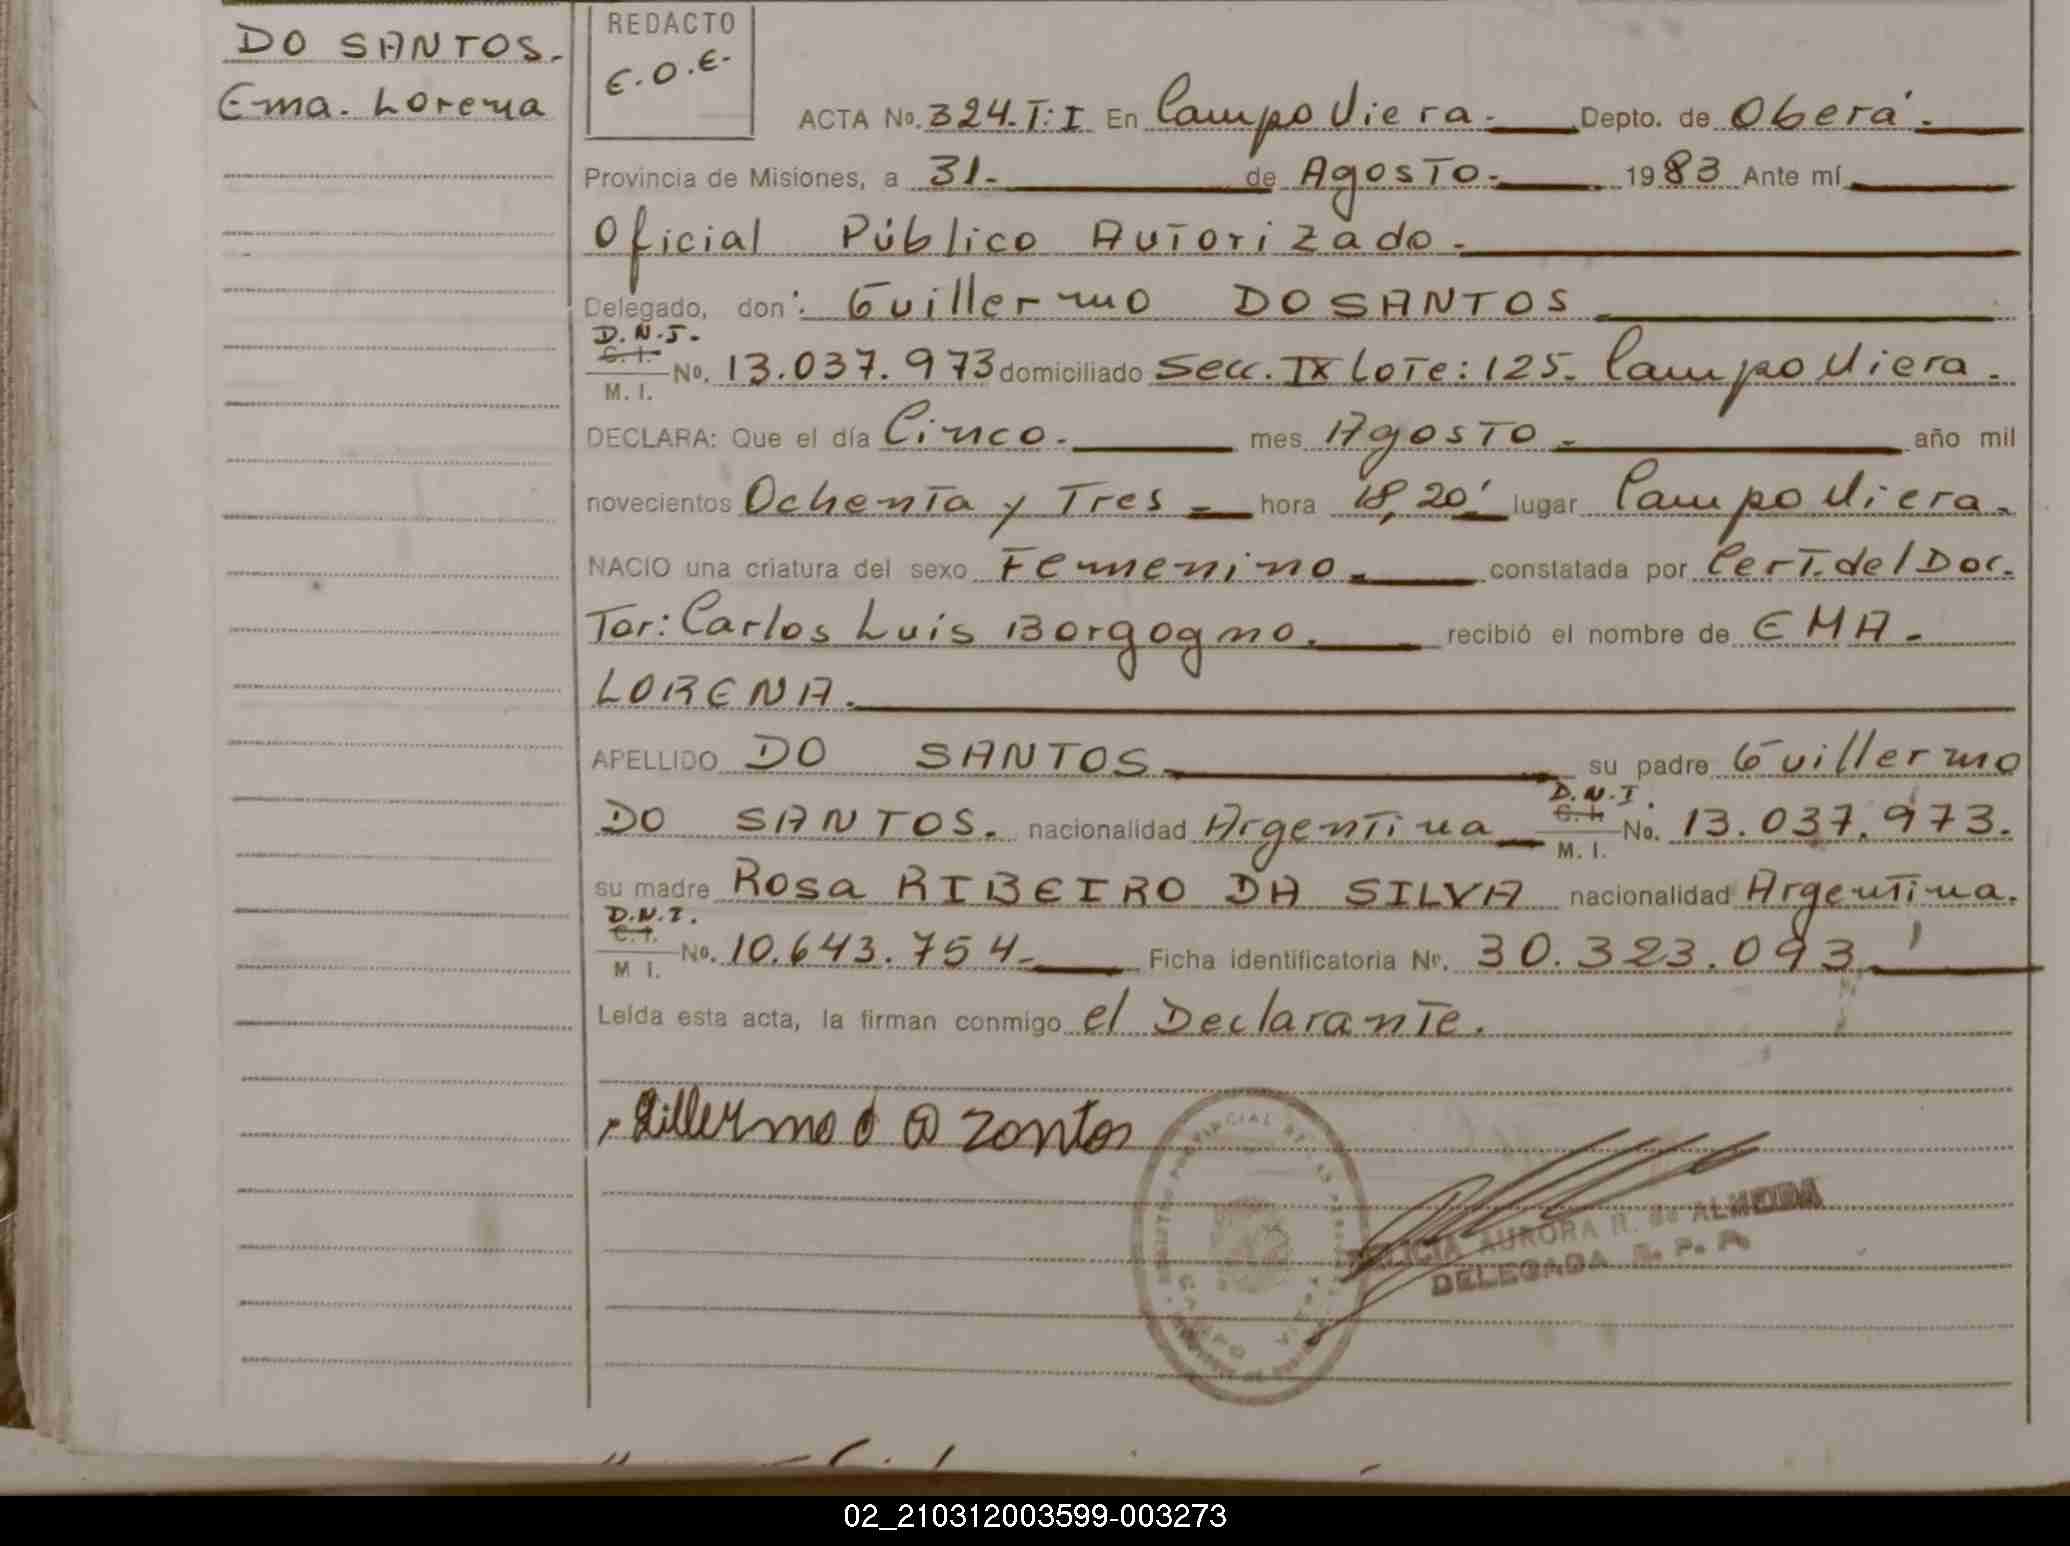 DO SANTOS.
Ema. Lorena
REDACTO
E.O.E.
ACTA No. 324.T:I En Campo Viera. Depto. de Oberá.
Provincia de Misiones, a 31. de Agosto. 1983 Ante mí
Oficial Público Autorizado.
Delegado, don: Guillermo DO SANTOS
D.N.I.
C. I.
M. I. No. 13.037.973 domiciliado Secc. IX Lote: 125. Campo Viera.
DECLARA: Que el día Cinco. mes Agosto. año mil
novecientos Ochenta y Tres hora 18,20' lugar Campo Viera.
NACIO una criatura del sexo Femenino. constatada por Cert. del Doc.
Tor: Carlos Luis Borgogno. recibió el nombre de EMA.
LORENA.
APELLIDO DO SANTOS su padre Guillermo
DO SANTOS. nacionalidad Argentina D.N.I. C. I. M. I. No. 13.037.973.
su madre Rosa RIBEIRO DA SILVA nacionalidad Argentina.
D.N.I.
C. I.
M I. No. 10.643.754. Ficha identificatoria Nº. 30.323.093
Leída esta acta, la firman conmigo el Declarante.
Zontos
AURORA R. de ALMEIDA
DELEGADA R. P. P.
02_210312003599-003273